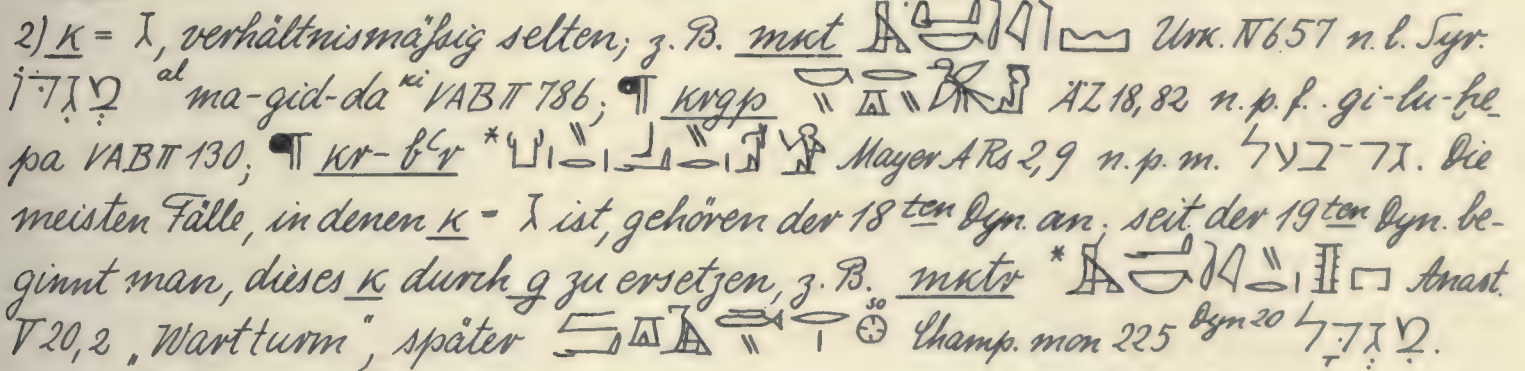 2) k = ג, verhältnismäßig selten; z. B. mkt Urk. IV 657 n. l. Syr.
מְגִדּוֹ al ma-gid-da ki VAB II 786; ¶ krgp ÄZ 18, 82 n. p. f. gi-lu-ḫe-
pa VAB II 130; ¶ kr-bʿr * Mayer A Rs 2, 9 n. p. m. גר־בעל. Die
meisten Fälle, in denen k = ג ist, gehören der 18ten Dyn. an; seit der 19ten Dyn. be-
ginnt man, dieses k durch g zu ersetzen, z. B. mktr * Anast.
V 20, 2 „Wartturm", später so Champ. mon 225 Dyn 20 מִגְדָּל.